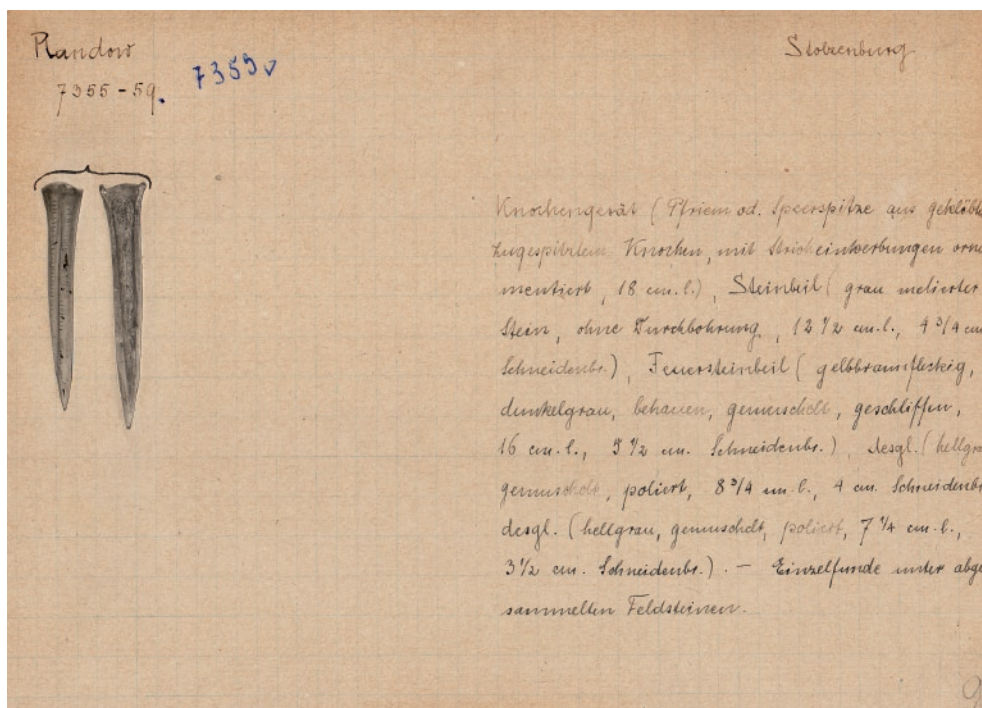 Randow
Stolzenburg
7355-59.
7359
Knochengerät (Pfriem od. Speerspitze aus geklöbte
zugespitztem Knochen, mit Stricheinkerbungen orna
mentiert, 18 cm. l.), Steinbeil (grau melierter
Stein, ohne Durchbohrung, 12 1/2 cm. l., 4 3/4 cm
Schneidenbr.), Feuersteinbeil (gelbbraunfleckig,
dunkelgrau, behauen, gemuschelt, geschliffen,
16 cm. l., 5 1/2 cm. Schneidenbr.), desgl. (hellgra
gemuschelt, poliert, 8 3/4 cm. l., 4 cm. Schneidenbr
desgl. (hellgrau, gemuschelt, poliert, 7 1/4 cm. l.,
3 1/2 cm. Schneidenbr.). — Einzelfunde unter abge
sammelten Feldsteinen.